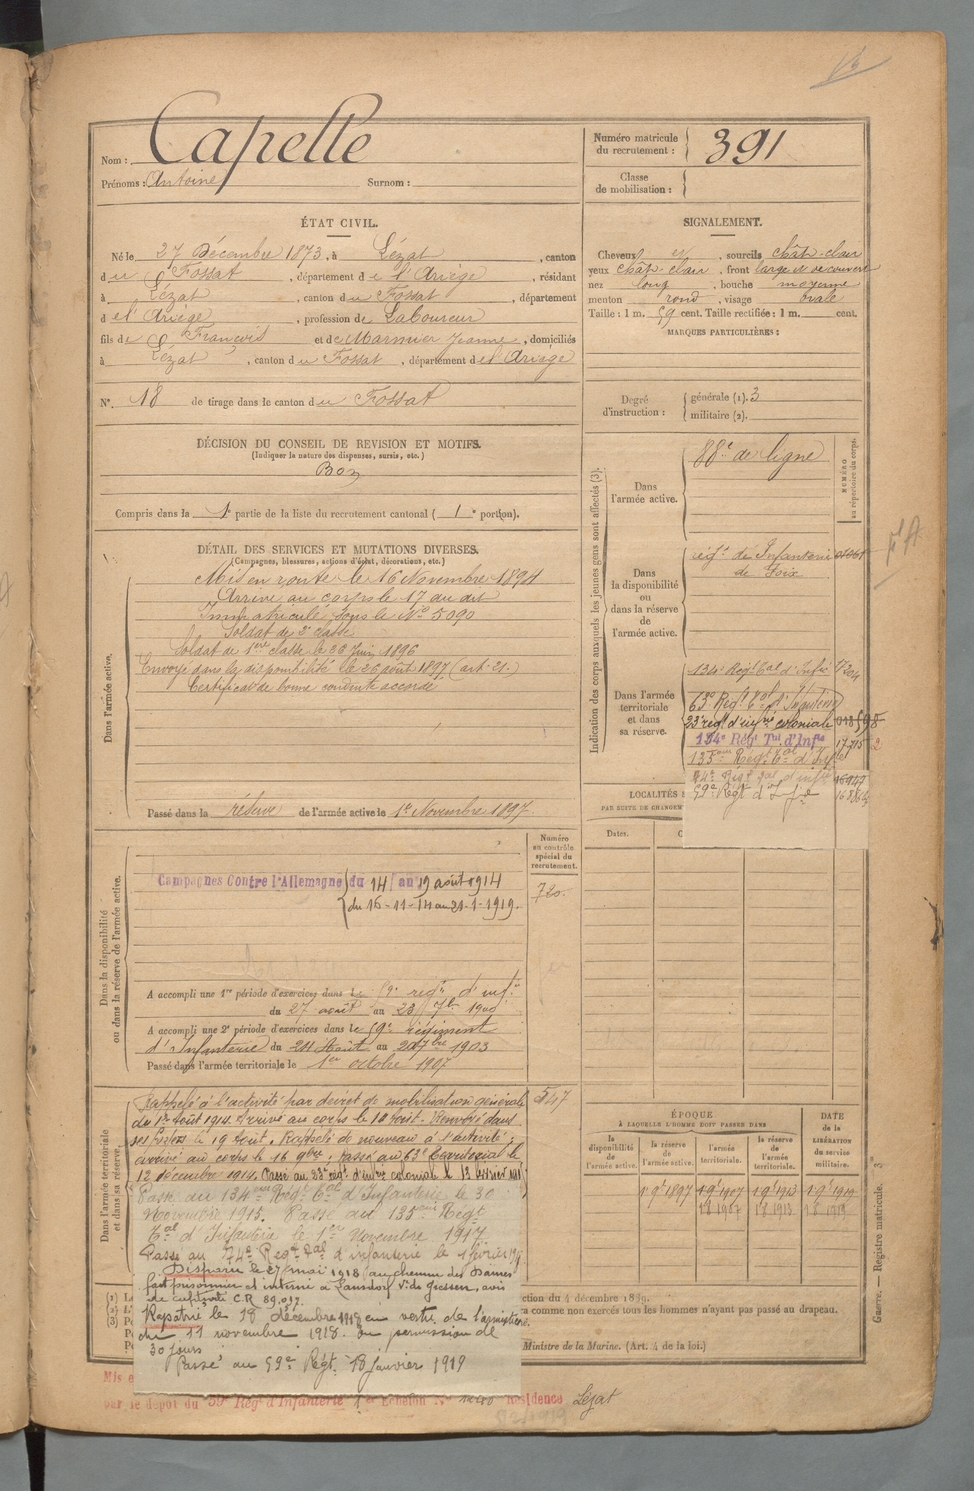 Nom : Capelle
Prénoms : Antoine Surnom :
Numéro matricule du recrutement : 391
Classe de mobilisation :
ÉTAT CIVIL.
Né le 27 Décembre 1873, à Lézat, canton
du Fossat, département de l'Ariège, résidant
à Lézat, canton du Fossat, département
de l'Ariège, profession de Laboureur
fils de François et de Marmier Jeanne, domiciliés
à Lézat, canton du Fossat, département de l'Ariège
N°. 18 de tirage dans le canton du Fossat
SIGNALEMENT.
Cheveux et sourcils chât-clair
yeux chât-clair, front large et découvert
nez long, bouche moyenne
menton rond, visage ovale
Taille : 1 m. 59 cent. Taille rectifiée : 1 m. cent.
MARQUES PARTICULIÈRES :
Degré d'instruction : générale (1). 3
militaire (2).
DÉCISION DU CONSEIL DE REVISION ET MOTIFS.
(Indiquer la nature des dispenses, sursis, etc.)
Bon
Compris dans la 1e partie de la liste du recrutement cantonal ( 1e portion).
DÉTAIL DES SERVICES ET MUTATIONS DIVERSES.
(Campagnes, blessures, actions d'éclat, décorations, etc.)
Dans l'armée active.
Mis en route le 16 Novembre 1894
Arrivé au corps le 17 du dit
Immatriculé sous le N° 5090
Soldat de 2e classe
Soldat de 1ère classe le 30 Juin 1896
Envoyé dans la disponibilité le 26 août 1897 (art. 21.)
Certificat de bonne conduite accordé
Passé dans la réserve de l'armée active le 1er Novembre 1897
Indication des corps auxquels les jeunes gens sont affectés (3).
NUMÉRO au répertoire du corps.
Dans l'armée active.
88e de ligne
Dans la disponibilité ou dans la réserve de l'armée active.
régt de Infanterie
de Foix
Dans l'armée territoriale et dans sa réserve.
134e Régt Tal d'Infie
63e Régt Tal d'Infanterie
23e régt d'infrie coloniale
134e Régt Tal d'Infie
135ème Régt Tal d'Inf
74e Régt Tal d'infie
59e Régt d'Infie
LOCALITÉS
PAR SUITE DE CHANGEM
Dates.
Dans la disponibilité ou dans la réserve de l'armée active.
Numéro au contrôle spécial du recrutement.
720.
Campagnes Contre l'Allemagne du 14 au 19 août 1914
du 16-11-14 au 21-1-1919.
A accompli une 1re période d'exercices dans le 59e régt d'infie
du 27 août au 23 7bre 1900
A accompli une 2e période d'exercices dans le 59e régiment
d'Infanterie du 24 Août au 20 7bre 1903
Passé dans l'armée territoriale le 1er octobre 1907
Dans l'armée territoriale et dans sa réserve.
547
Rappelé à l'activité par décret de mobilisation générale
du 1er Août 1914. Arrivé au corps le 18 Août. Renvoyé dans
ses foyers le 19 Août. Rappelé de nouveau à l'activité,
arrivé au corps le 16 9bre. Passé au 63e Territorial le
12 décembre 1914. Passé au 33e régt d'infrie coloniale le 13 février 1915
Passé au 134ème Régt Tal d'Infanterie le 30
Novembre 1915. Passé au 135ème Régt
Tal d'Infanterie le 1er Novembre 1917.
Passé au 74e Régt Tal d'infanterie le 1 février
Disparu le 27 mai 1918 au chemin des Dames
fait prisonnier et interné à Lansdorf V. de Giessen, avis
de captivité C.R 89.037.
Rapatrié le 18 décembre 1918 en vertu de l'armistice
du 11 novembre 1918. En permission de
30 jours
Passé au 59e Régt. 18 Janvier 1919
ÉPOQUE
À LAQUELLE L'HOMME DOIT PASSER DANS
la disponibilité de l'armée active.
la réserve de l'armée active.
l'armée territoriale.
la réserve de l'armée territoriale.
DATE de la LIBÉRATION du service militaire.
1er 9bre 1897
ction du 4 décembre 1889.
ra comme non exercés tous les hommes n'ayant pas passé au drapeau.
Ministre de la Marine. (Art. 4 de la loi.)
GUERRE. — Registre matricule.
Mis e
par le dépôt du 59e Régt d'Infanterie 1er Echelon N° résidence Lézat